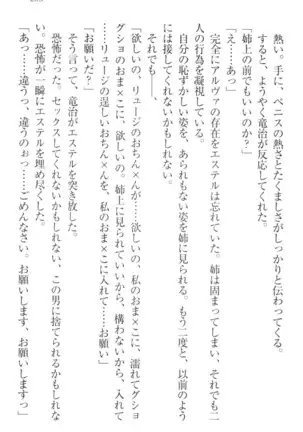 熱い。手に、ペニスの熱さとたくましさがしっかりと伝わってくる。
すると、ようやく竜治が反応してくれた。
「姉上の前でもいいのか？」
「え……あっ」
完全にアルヴァの存在をエステルは忘れていた。姉は固まってしまい、それでも二
人の行為を凝視している。
自分の恥ずかしい姿を、あられもない姿を姉に見られる。もう二度と、以前のよう
には接してくれないかもしれない。
それでも――、
「欲しいの、リュージのおち×んが……欲しいの。私のおま×こに、濡れてグショ
グショのおま×こに、欲しいの。姉上に見られていいから、構わないから、入れて
……リュージの逞しいおちん×んを、私のおま×こに入れて……お願い」
「お願いだ？」
そう言って、竜治がエステルを突き放した。
恐怖だった。セックスしてくれないかもしれない、この男に捨てられるかもしれな
い。恐怖が一瞬にエステルを埋め尽くした。
「あっ……違う、違うのぉ……ごめんなさい。お願いします、お願いしますっ」